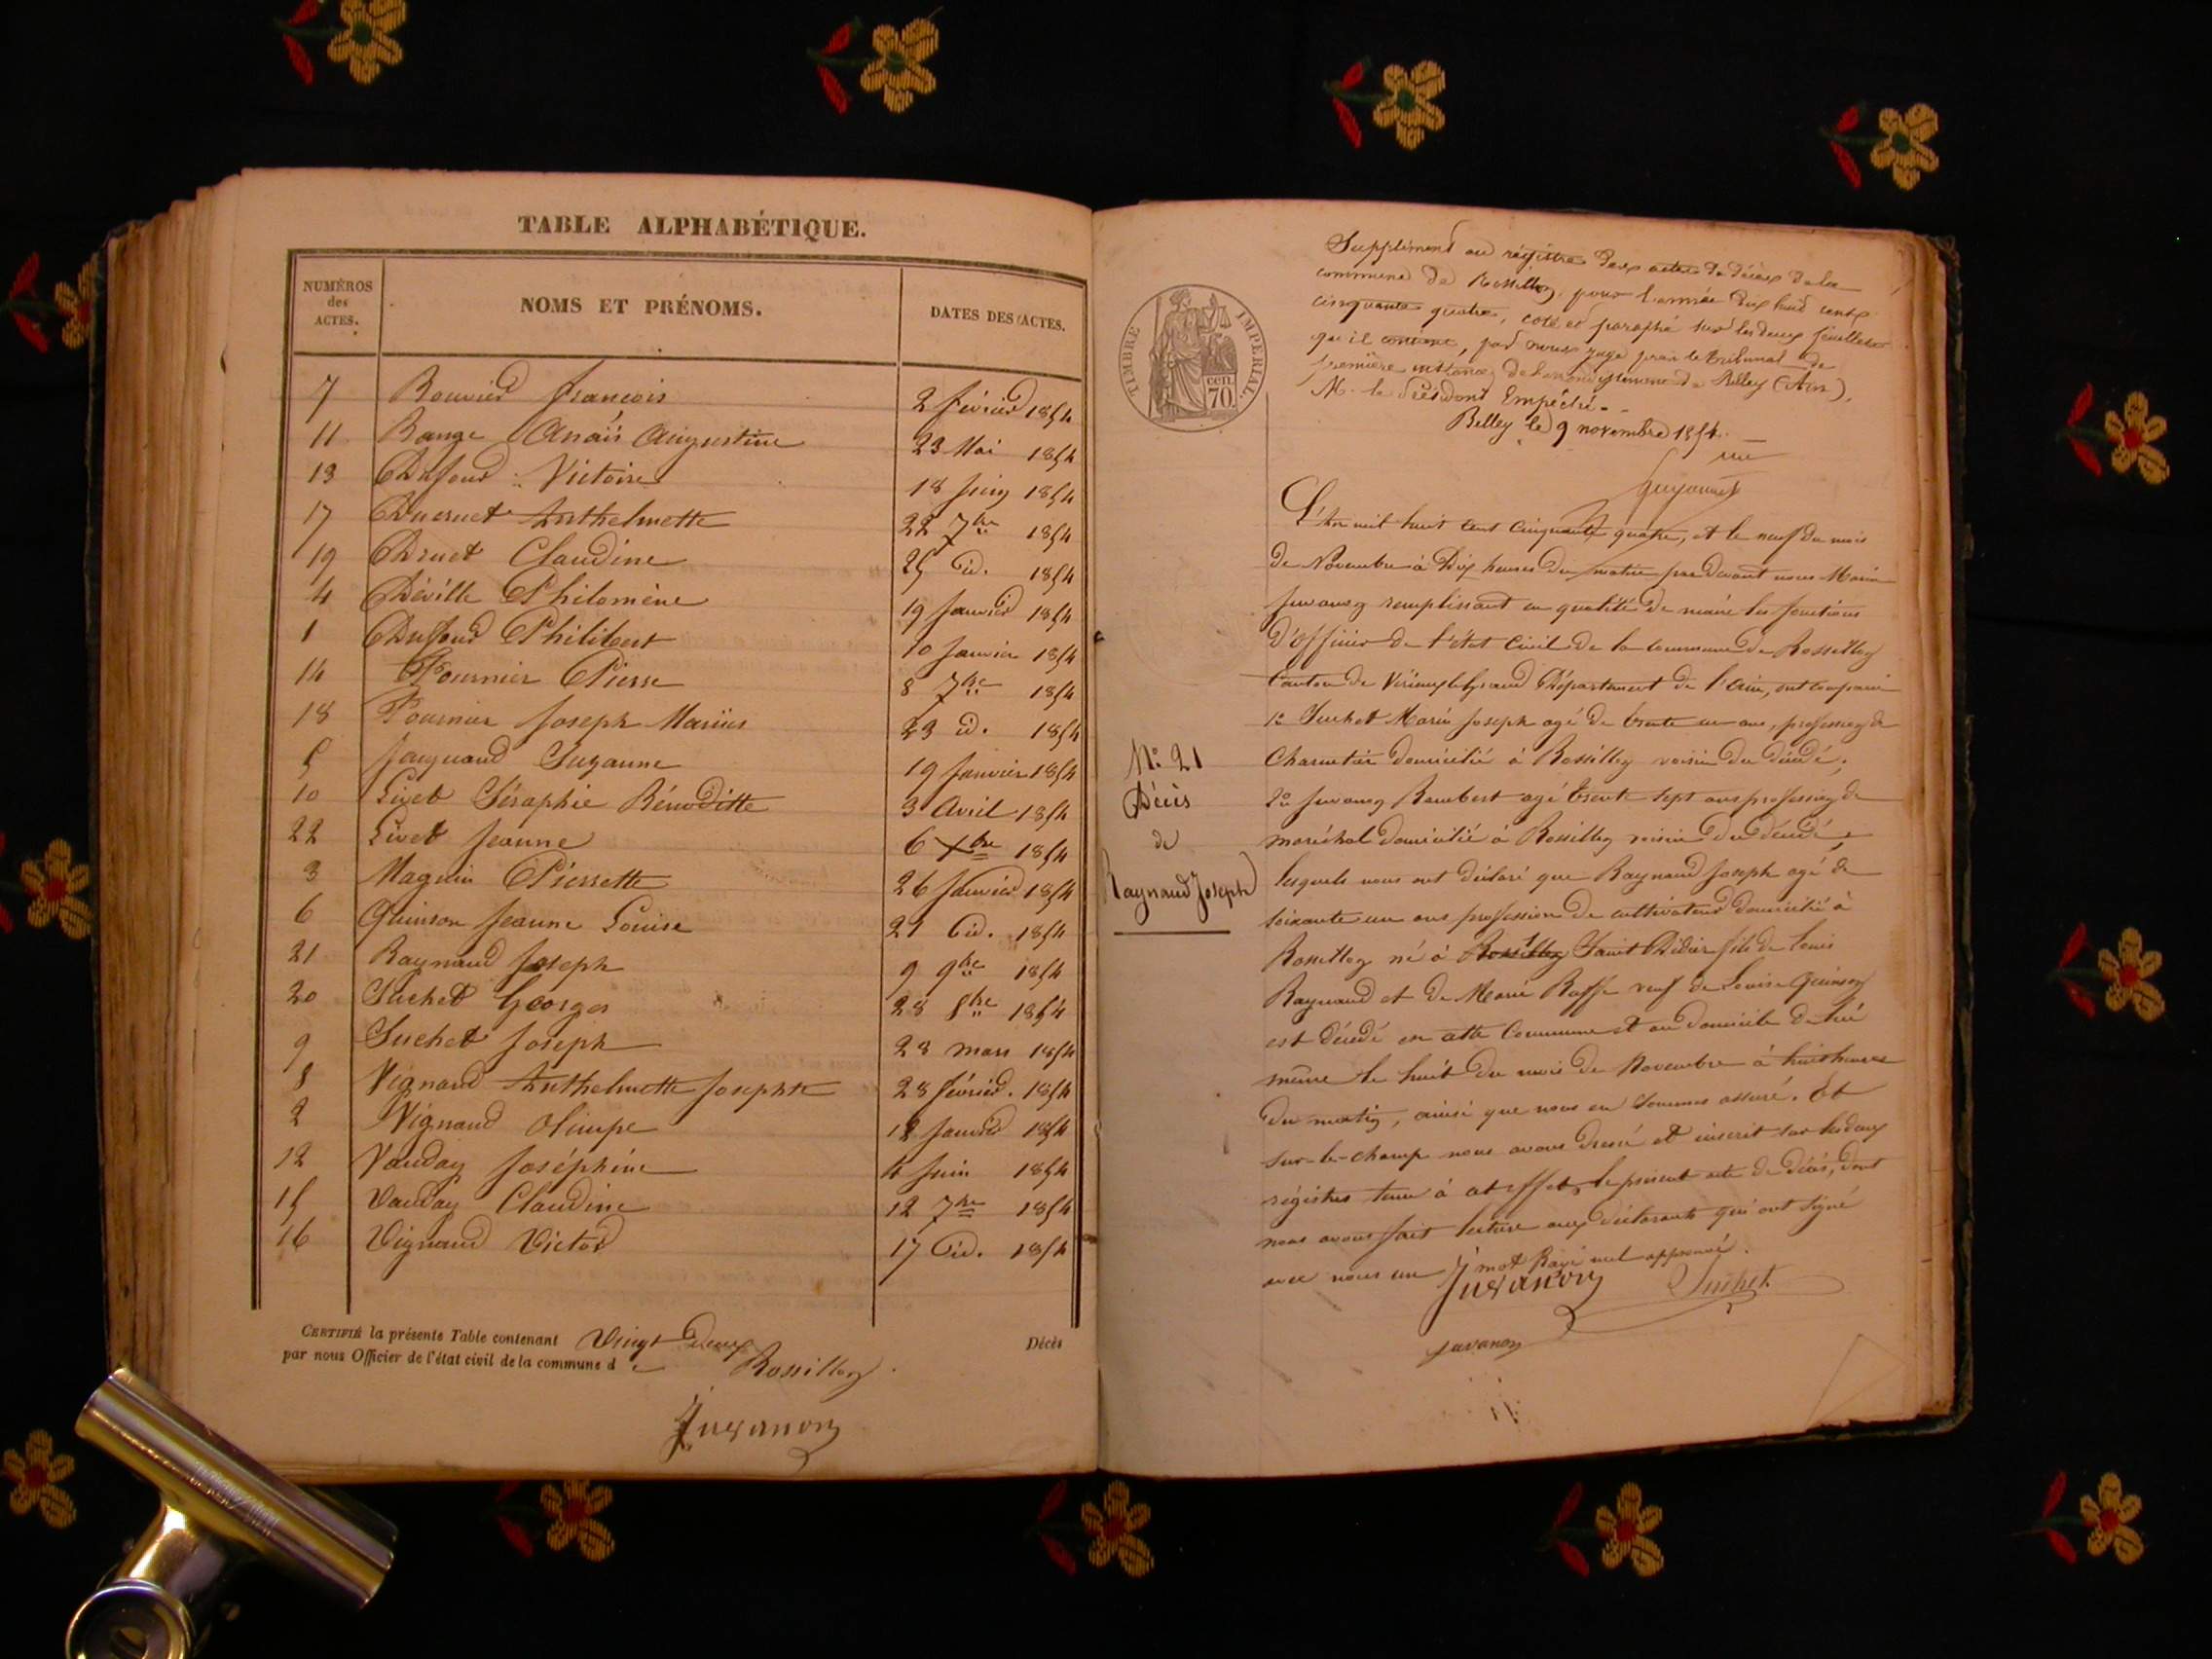 TABLE ALPHABÉTIQUE.
NUMÉROS des ACTES. NOMS ET PRÉNOMS. DATES DES ACTES.
7 Bouvier François 2 février 1854
11 Bange Anaïs Augustine 23 Mai 1854
13 Dufour Victoire 18 Juin 1854
17 Ducruet Anthelmette 22 7bre 1854
19 Druet Claudine 25 id. 1854
4 Déville Philomène 19 Janvier 1854
1 Dufour Philibert 10 Janvier 1854
14 Fournier Pierre 8 7bre 1854
18 Fournier Joseph Marius 23 id. 1854
5 Jacquand Suzanne 19 Janvier 1854
10 Livet Séraphie Bénoditte 3 Avril 1854
22 Livet Jeanne 6 Xbre 1854
3 Magnin Pierrette 26 Janvier 1854
6 Quinson Jeanne Louise 27 id. 1854
21 Raynaud Joseph 9 9bre 1854
20 Suchet Georges 28 8bre 1854
9 Suchet Joseph 28 mars 1854
8 Vignand Anthelmette Josephte 28 février. 1854
2 Vignand Olimpe 12 Janvier 1854
12 Vauday Joséphine 4 Juin 1854
15 Vauday Claudine 12 7bre 1854
16 Vignand Victor 17 id. 1854
CERTIFIÉ la présente Table contenant Vingt deux Décès
par nous Officier de l'état civil de la commune de Rossillon.
Juvanon
TIMBRE IMPÉRIAL.
cen. 70.
Supplément au régistre des actes de décès de la
commune de Rossillon, pour l'année dix huit cent
cinquante quatre, coté et paraphé sur les deux feuillets
qu'il contient, par nous juge près le tribunal de
première instance de l'arrondissement de Belley (Ain),
M. le Président Empêché.
Belley le 9 novembre 1854.
L'An mil huit cent cinquante quatre, et le neuf du mois
de Novembre à Dix heures du matin par devant nous Marin
Juvanon remplissant en qualité de maire les fonctions
d'officier de l'état civil de la commune de Rossillon
Canton de Virieu le grand Département de l'Ain, ont comparu
1o Suchet Marin Joseph agé de trente un ans, profession de
Charpentier domicilié à Rossillon voisin du décédé;
2o Juvanon Rambert agé trente sept ans profession de
maréchal domicilié à Rossillon voisin du décédé,
lesquels nous ont déclaré que Raynaud Joseph agé de
soixante un ans profession de cultivateur domicilié à
Rossillon né à Rossillon Saint Didier fils de Louis
Raynaud et de Marie Roffe veuf de Louise Quinson
est décédé en cette Commune et au domicile de lui
même le huit du mois de Novembre à huit heures
du matin, ainsi que nous en sommes assuré. Et
sur-le-champ nous avons dressé et inscrit sur les deux
régistres tenu à cet effet, le présent acte de décès, dont
nous avons fait lecture aux déclarants qui ont signé
avec nous un mot Rayé nul approuvé.
No 21
Décès
de
Raynaud Joseph
Juvanon Suchet
Juvanon